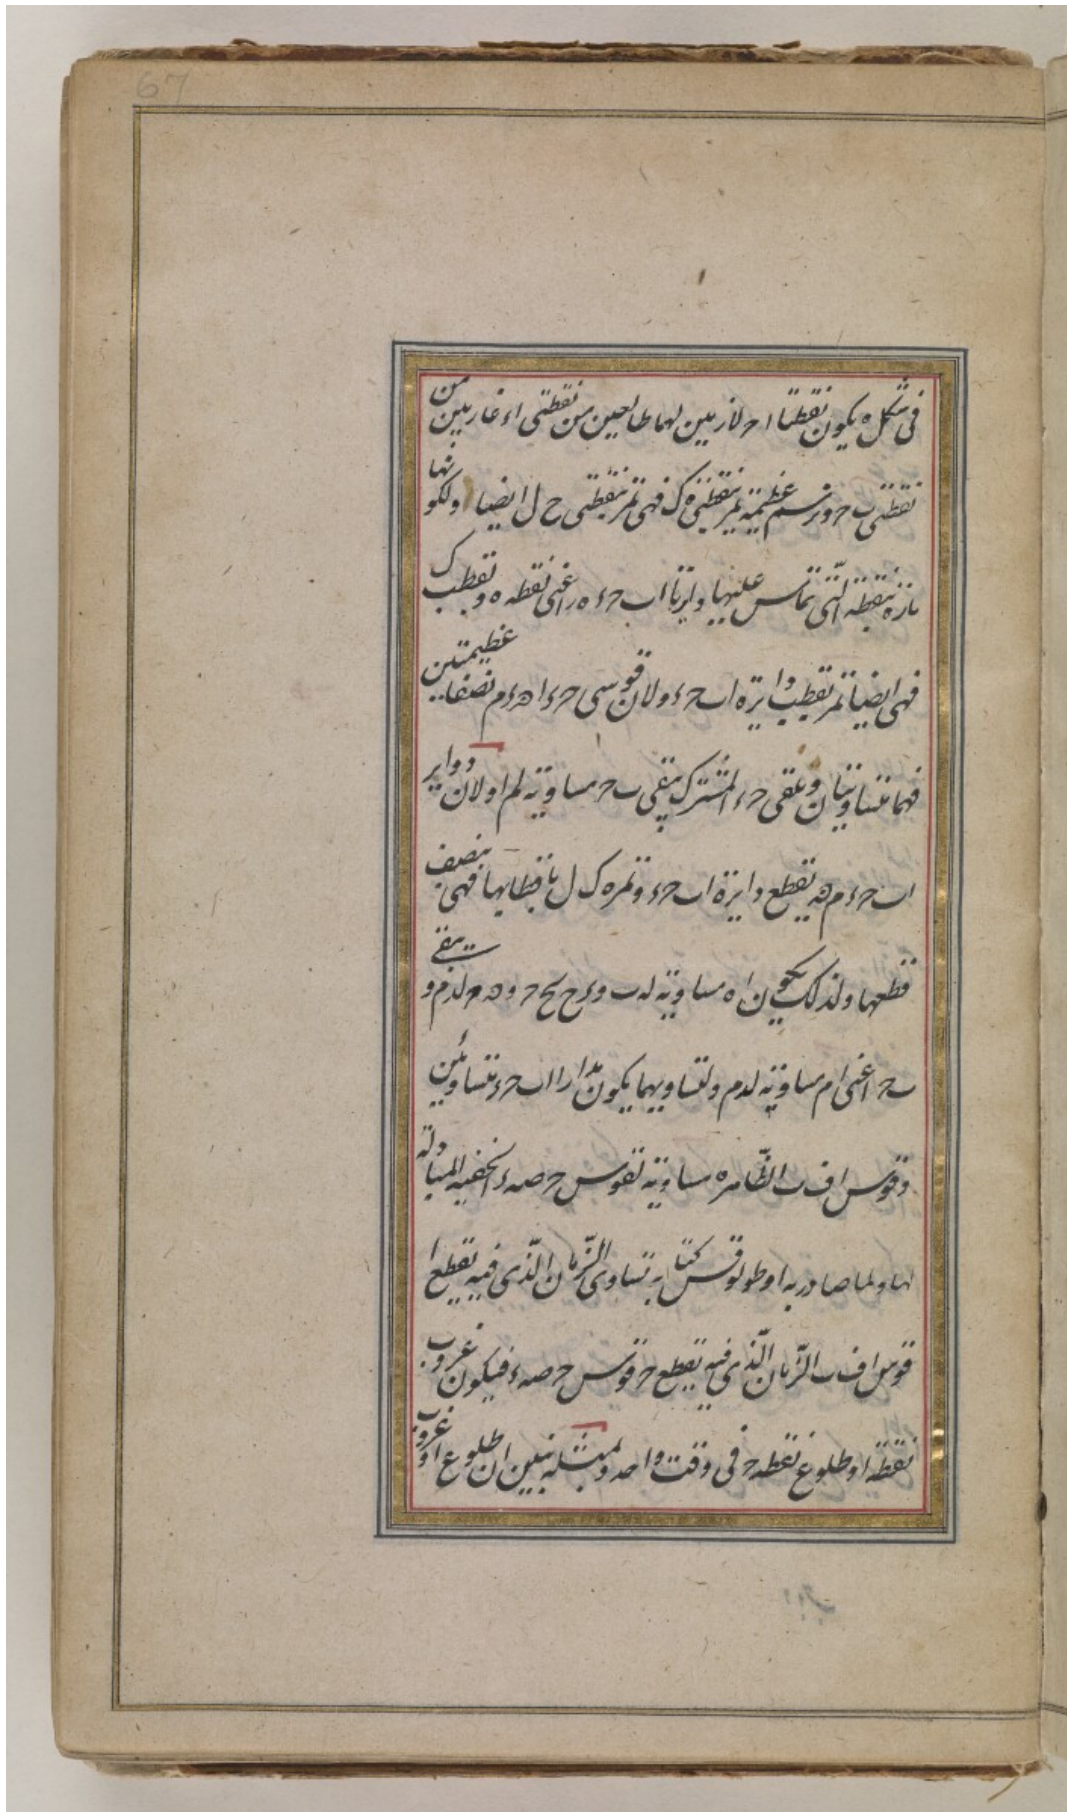 67
فى شكل ه يكون نقطتا ا ح لازمين لهما طالعين من نقطتى ا ء غاربين من
نقطتى ب ح ونرسم عظيمة تمر بنقطتى ه ك فهى تمر بنقطتى ح ل ايضا ولكونها
مارة بنقطة التى تماس عليها دايرتا ا ب ح ء ه ر اعنى نقطة ه وبقطب ك
فهى ايضا تمر بقطب دايرة ا ب ح ء ولان قوسى ح ء ا ه ء م نصفا عظيمتين
فهما متساويتان ونلقى ح ء المشترك يبقى ب ح مساوية لم ا ولان دواير
ا ب ح ء م ه يقطع دايرة ا ب ح ء وتمر ه ك ل باقطابها فهى بنصف
قطعها ولذلك يكون ا ه مساوية له ب و ء ح لح ح و ه م لدم و يبقى
ب ح اعنى ا م مساوية لدم ولتساويهما يكون مدارا ا ب ح ء متساويين
وقوس ا ف ب الظاهرة مساوية لقوس ح صه ء الخفية المبادلة
لها ولما صادر به اوطولوقس كتابه تساوى الزمان الذى فيه يقطع ا
قوس ا ف ب الزمان الذى فيه يقطع ح قوس ح صه ء فيكون غروب
نقطة ا وطلوع نقطة ح فى وقت واحد وبمثله نبين ان طلوع ا وغروب